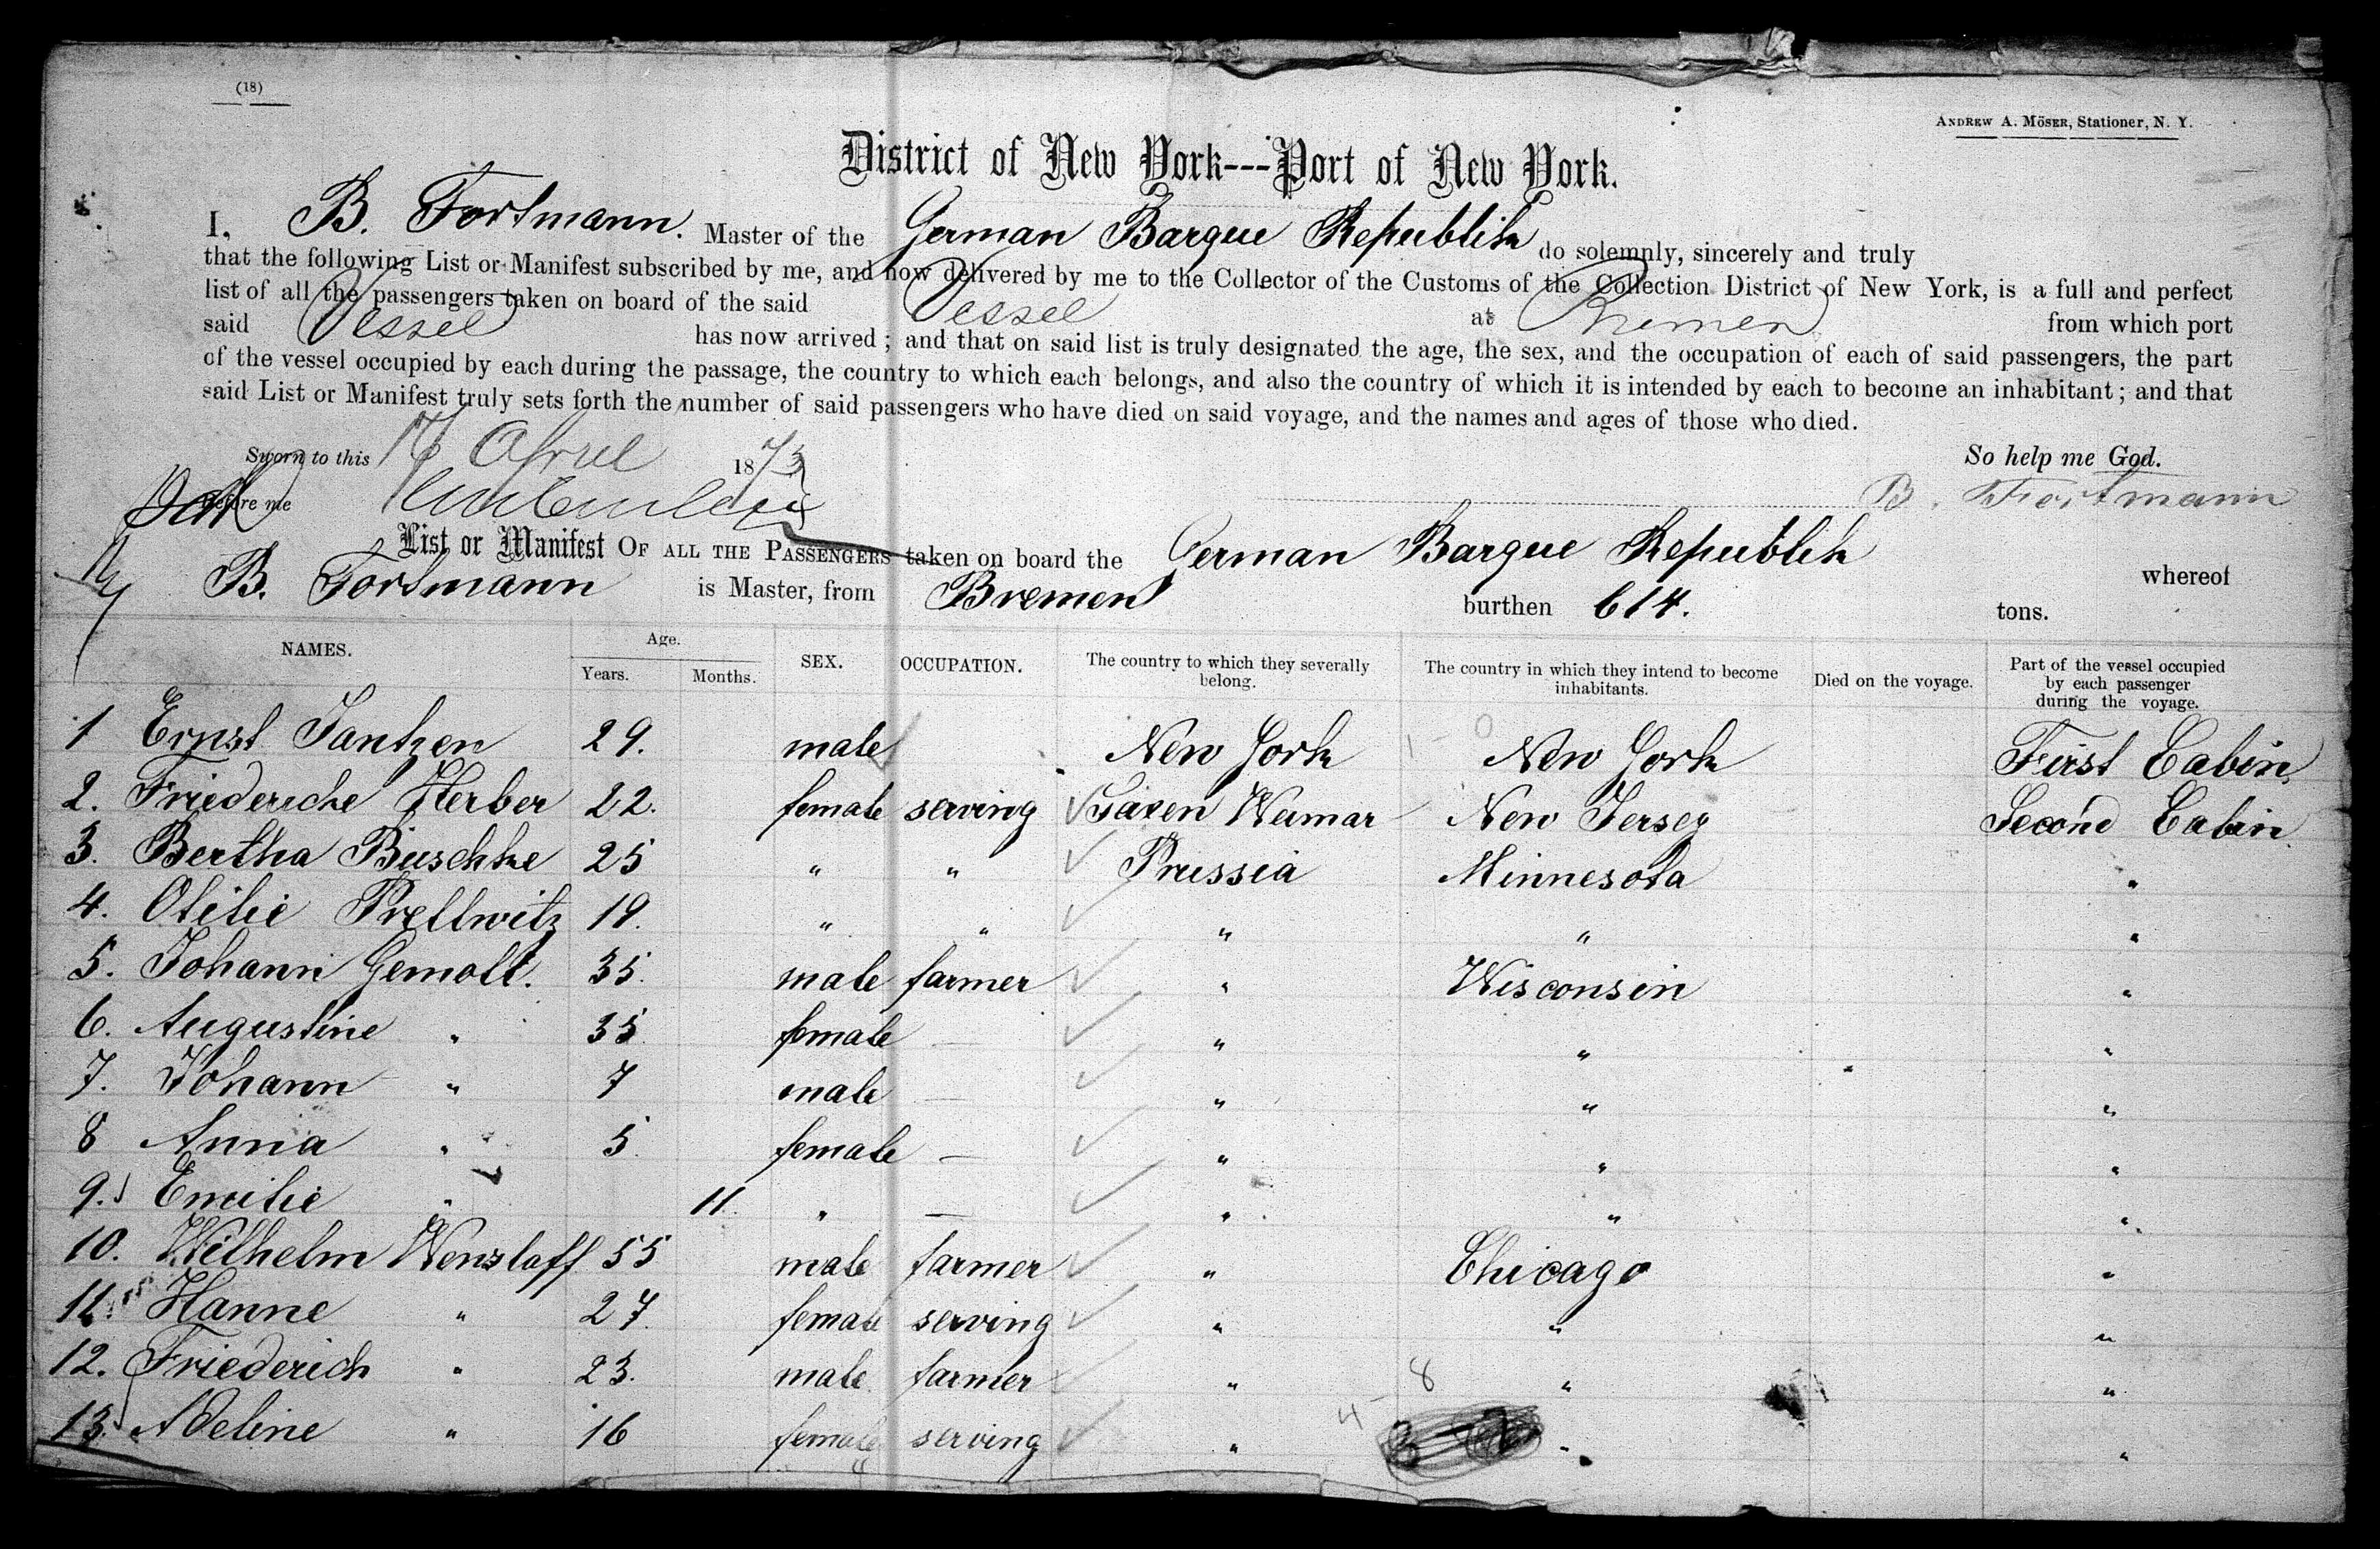 (18)
ANDREW A. MÖSER, Stationer, N. Y.
District of New York---Port of New York.
I, B. Fortmann. Master of the German Barque Republik do solemnly, sincerely and truly
that the following List or Manifest subscribed by me, and now delivered by me to the Collector of the Customs of the Collection District of New York, is a full and perfect
list of all the passengers taken on board of the said Vessel at Bremen from which port
said Vessel has now arrived; and that on said list is truly designated the age, the sex, and the occupation of each of said passengers, the part
of the vessel occupied by each during the passage, the country to which each belongs, and also the country of which it is intended by each to become an inhabitant; and that
said List or Manifest truly sets forth the number of said passengers who have died on said voyage, and the names and ages of those who died.
Sworn to this 17 April 1873 So help me God.
Before me B. Fortmann
List or Manifest OF ALL THE PASSENGERS taken on board the German Barque Republik whereof
B. Fortmann is Master, from Bremen burthen 614. tons.
NAMES. Age. Years. Months. SEX. OCCUPATION. The country to which they severally belong. The country in which they intend to become inhabitants. Died on the voyage. Part of the vessel occupied by each passenger during the voyage.
1 Ernst Jantzen 29. male New York New York First Cabin
2. Friedericke Herber 22. female serving Saxen Weimar New Jersey Second Cabin
3. Bertha Buschke 25 " " Prussia Minnesota "
4. Otilie Prellwitz 19. " " " " "
5. Johann Gemolt. 35. male farmer " Wisconsin "
6. Augustine " 35. female — " " "
7. Johann " 7 male — " " "
8 Anna " 5. female — " " "
9. Emilie " 11. " — " " "
10. Wilhelm Wenzlaff 55 male farmer " Chicago "
11. Hanne " 27. female serving " " "
12. Friederich " 23. male farmer " " "
13. Adeline " 16 female serving " " "